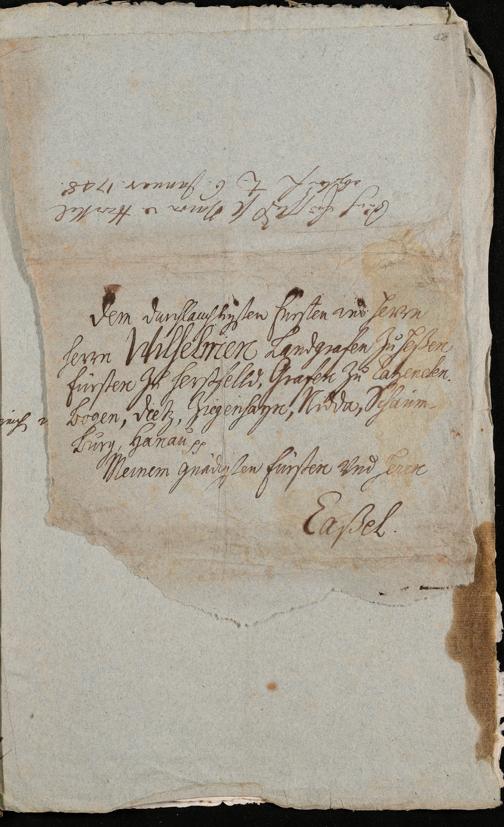 6. Januar. 1748.
Dem durchlauchtigsten Fürsten und Herrn
Herrn Wilhelmen Landgrafen zu Heßen
Fürsten zu Herßfelld, Grafen zu Catzenelen-
bogen, Dietz, Ziegenhayn, Nidda, Schaum-
burg, Hanau pp
Meinem gnädigsten Fürsten und Herrn
Caßel.